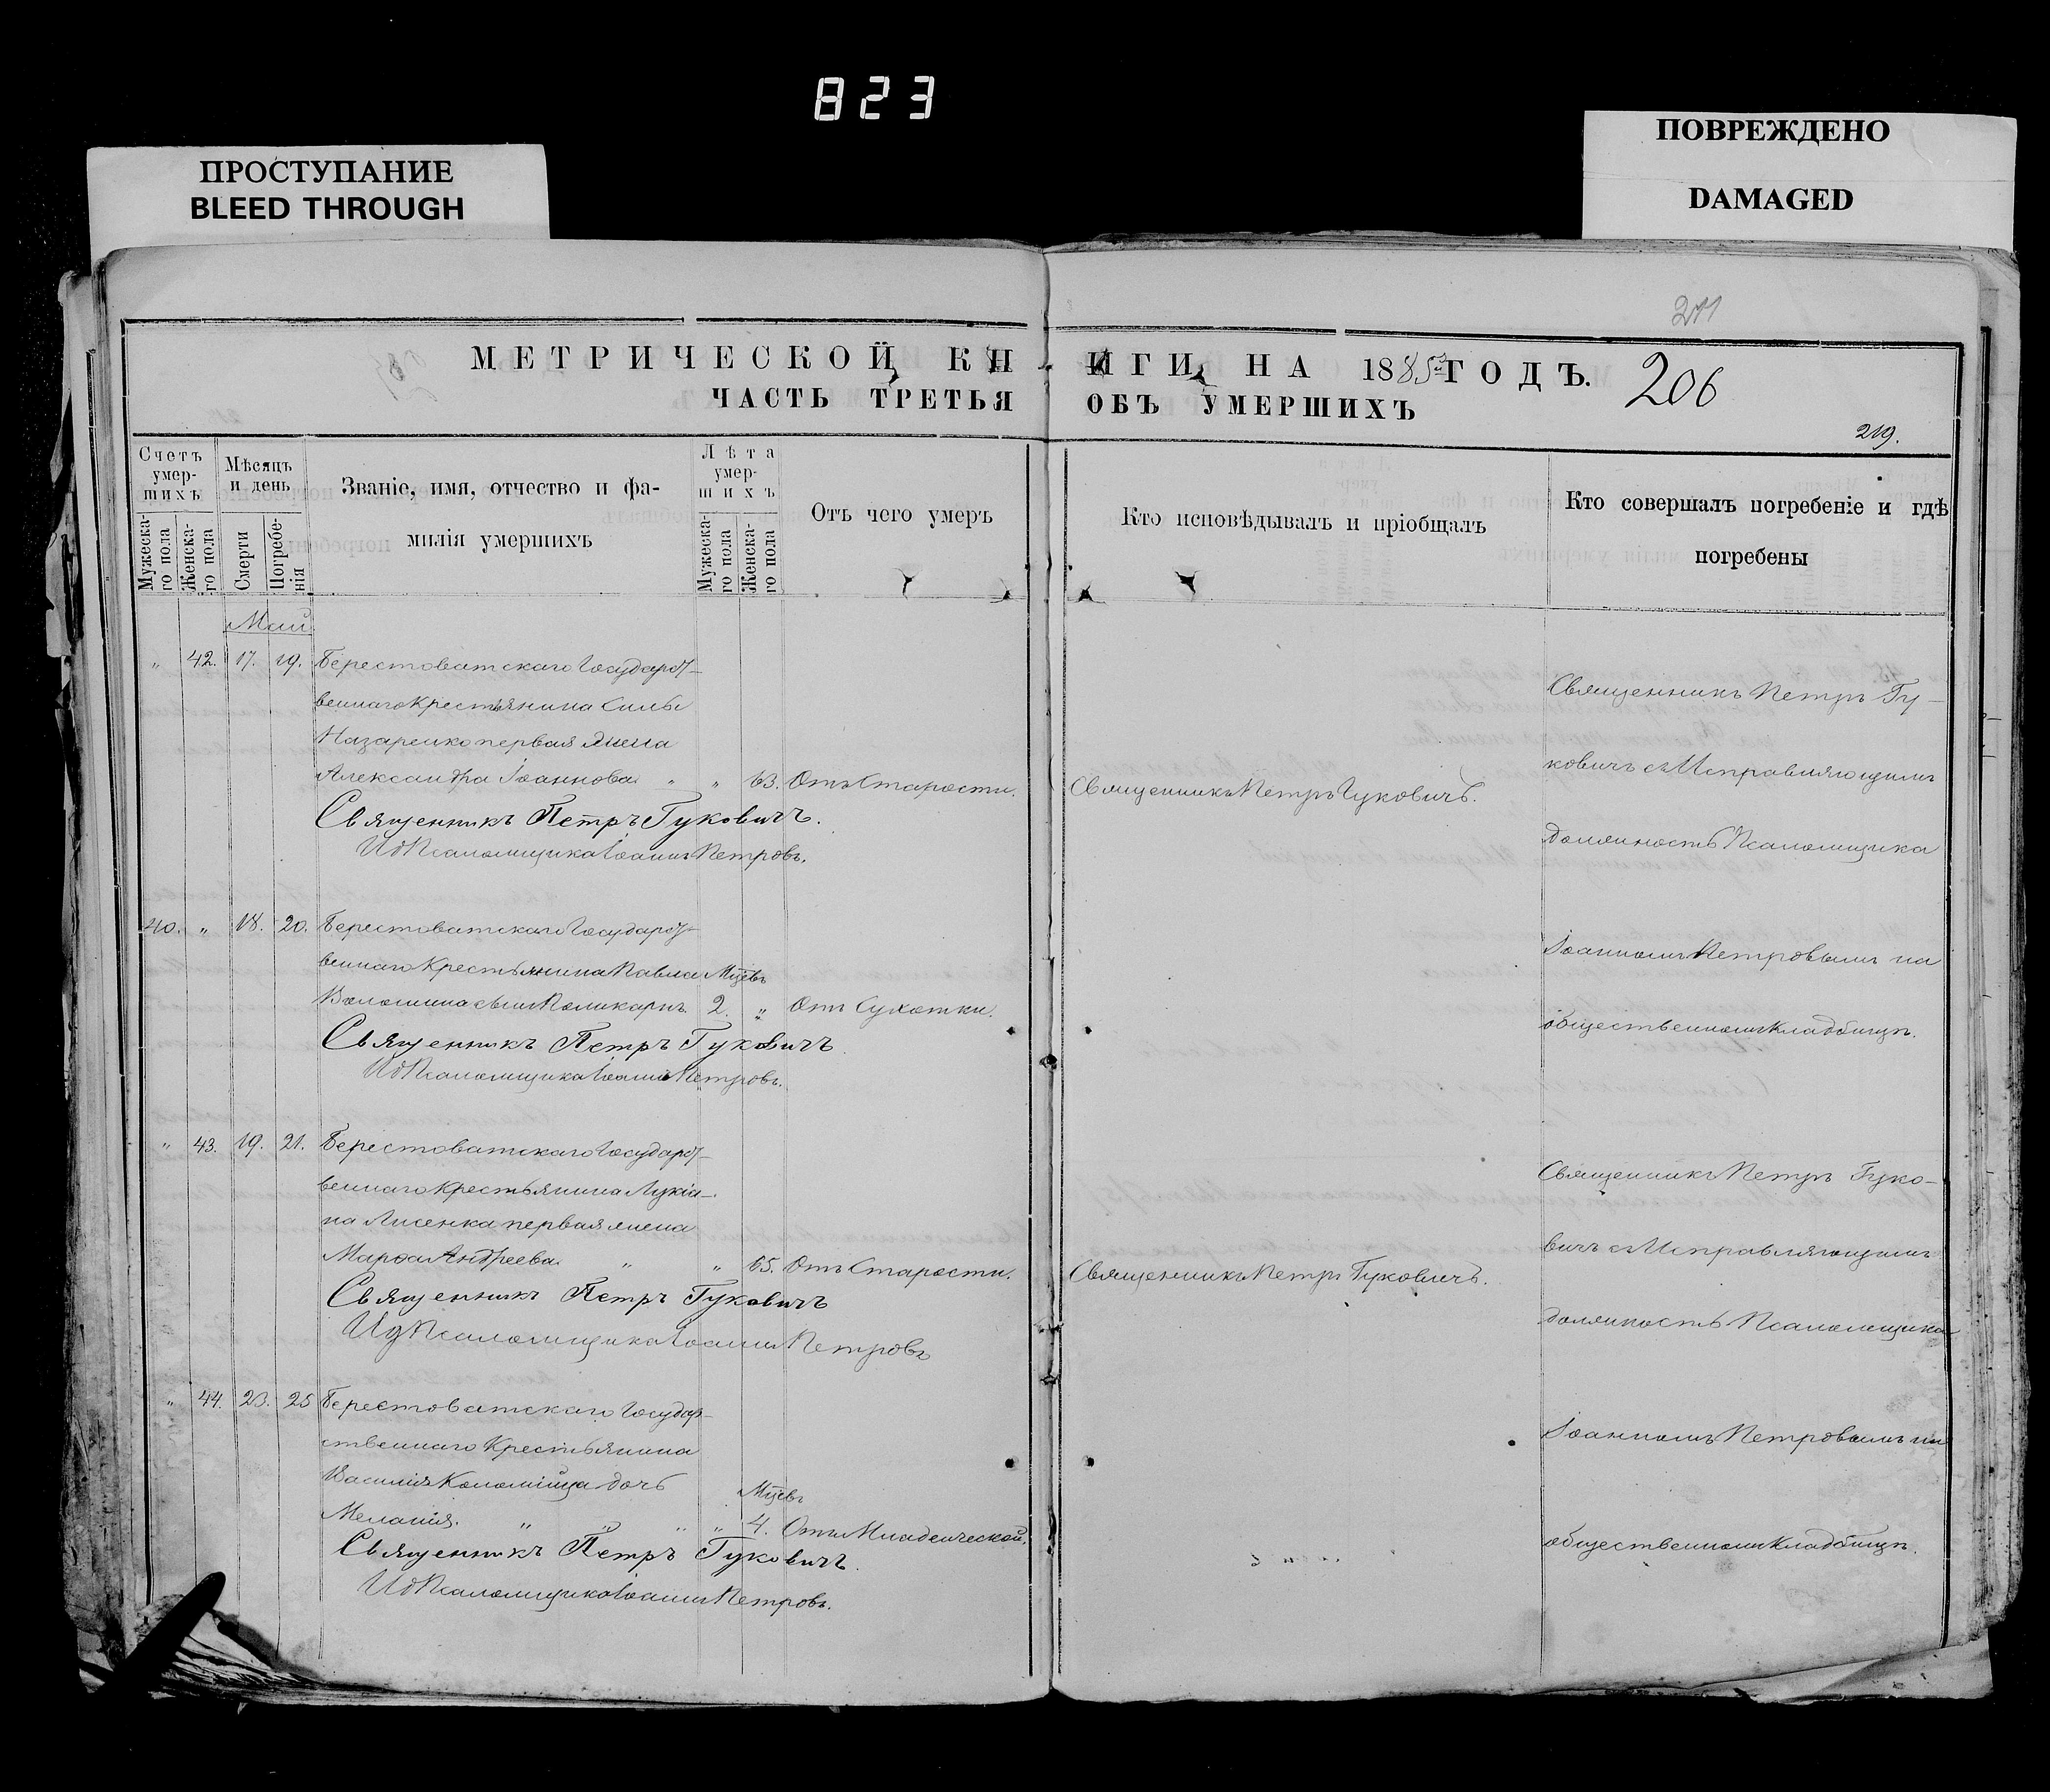 823
ПРОСТУПАНИЕ
BLEED THROUGH
ПОВРЕЖДЕНО
DAMAGED
211
МЕТРИЧЕСКОЙ КНИГИ НА 1885й ГОДЪ.
206
ЧАСТЬ ТРЕТЬЯ ОБЪ УМЕРШИХЪ
219.
Счетъ умер-шихъ
Мужеска-го пола
Женска-го пола
Мѣсяцъ и день
Смерти
Погребе-нія
Званіе, имя, отчество и фа-
милія умершихъ
Лѣта умер-шихъ
Мужеска-го пола
Женска-го пола
Отъ чего умеръ
Кто исповѣдывалъ и пріобщалъ
Кто совершалъ погребеніе и гдѣ
погребены
Май
" 42. 17. 19. Берестоватскаго Государст-
веннаго Крестьянина Силы
Назаренко первая жена
Александра Іоаннова " " 63. Отъ Старости. Священникъ Петръ Гуковичъ.
Священникъ Петръ Гуковичъ.
Ид Псаломщика Іоаннъ Петровъ.
Священникъ Петръ Гу-
ковичъ съ Исправляющимъ
должность Псаломщика
Іоанномъ Петровымъ на
общественномъ кладбищѣ.
40. " 18. 20. Берестоватскаго Государст-
веннаго Крестьянина Павла Мцевъ
Волошина сынъ Поликарпъ. 2. " Отъ Сухотки.
Священникъ Петръ Гуковичъ
Ид Псаломщика Іоаннъ Петровъ.
" 43. 19. 21. Берестоватскаго Государст-
веннаго Крестьянина Лукіа-
на Лисенка первая жена
Марфа Андреева " " 65. Отъ Старости. Священникъ Петръ Гуковичъ.
Священникъ Петръ Гуковичъ
Ид Псаломщика Іоаннъ Петровъ
Священникъ Петръ Гуко-
вичъ съ Исправляющимъ
должность Псаломщика
Іоанномъ Петровымъ на
общественномъ кладбищѣ.
" 44. 23. 25 Берестоватскаго Государ-
ственнаго Крестьянина
Василія Коломійца дочь Мцевъ
Меланія. " " " " 4. Отъ Младенческой.
Священникъ Петръ Гуковичъ.
Ид Псаломщика Іоаннъ Петровъ.